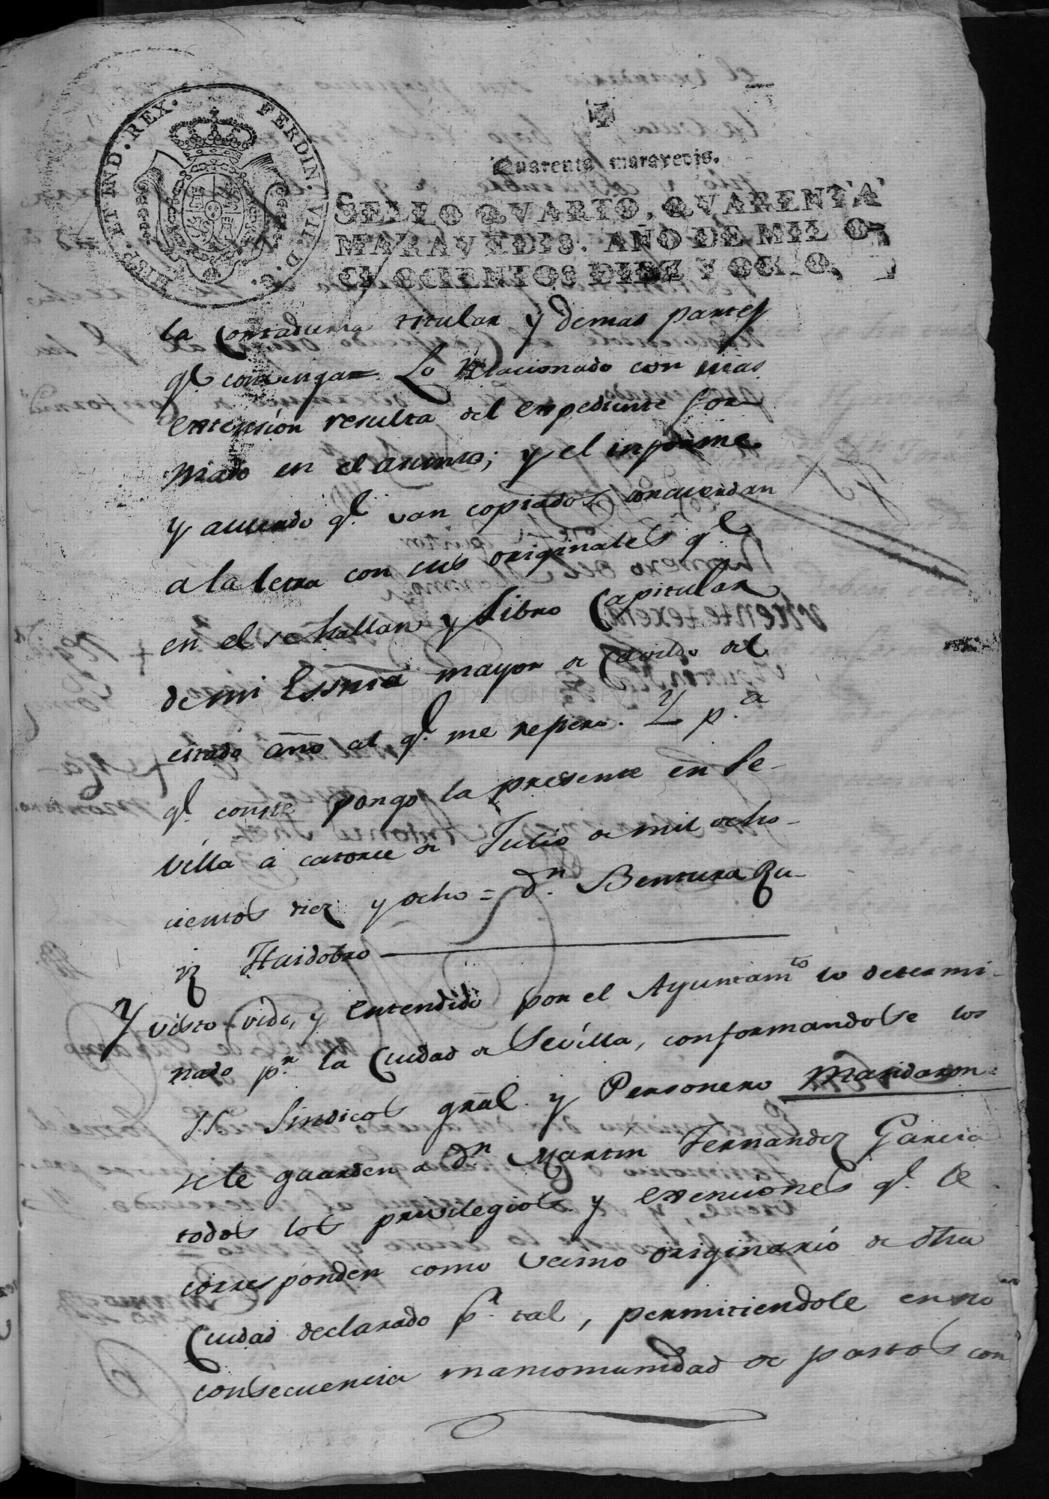 HISP. ET IND. REX. FERDIN. VII. D. G.
Quarenta maravedis.
SELLO QVARTO, QVARENTA
MARAVEDIS. AÑO DE MIL O
CHOCIENTOS DIEZ Y OCHO.
la Contaduria titular y demas partes
qe. convenga= Lo relacionado con mas
extensión resulta del expediente for
mado en el asunto; y el informe
y acuerdo qe. van copiados concuerdan
a la letra con sus originales qe.
en el se hallan y Libro Capitular
de mi Essnia mayor de Cavildo del
citado año al qe. me refiero. Y pa.
qe. conste pongo la presente en Se-
villa á catorce de Julio de mil ocho-
cientos diez y ocho = Dn. Bentura Ru-
iz Huidobro
Y visto, oido, y entendido por el Ayuntamto. lo determi-
nado pr. la Ciudad de Sevilla, conformandose los
SS. Sindicos gral. y Personero Mandaron=
se le guarden a Dn. Martin Fernandez Garcia
todos los privilegios y exenciones qe. le
corresponden como vecino originario de dha
Ciudad declarado pr. tal, permitiendole en
consecuencia mancomunidad de pastos con